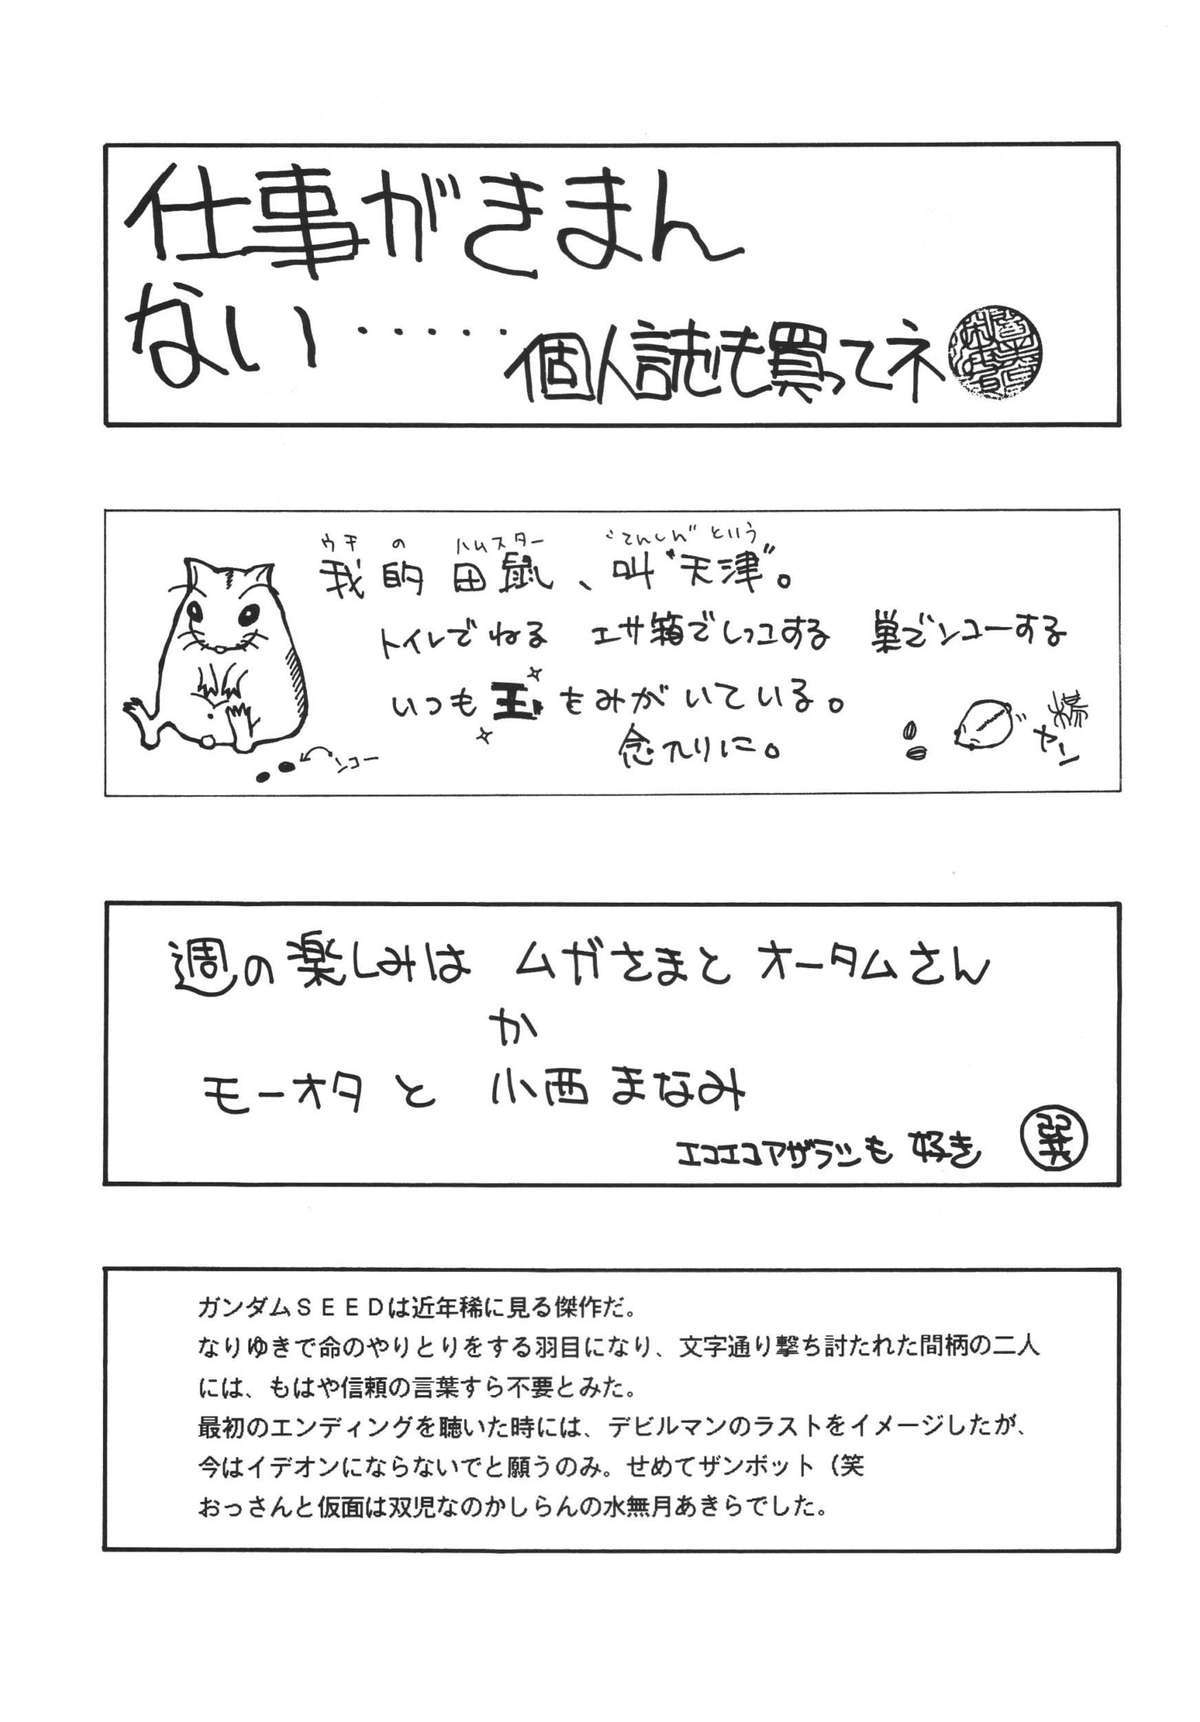 仕事がきまん
ない・・・・・
個人誌も買ってネ
ウチ の ハムスター “てんしん” という
我的田鼠、叫“天津”。
トイレでねる エサ箱でしっコする 巣でンコーする
いつも玉をみがいている。
念入りに。
ンコー
楊
ヤン
週の楽しみは ムガさまと オータムさん
か
モーオタと 小西まなみ
エコエコアザラシも 好き
巽
ガンダムＳＥＥＤは近年稀に見る傑作だ。
なりゆきで命のやりとりをする羽目になり、文字通り撃ち討たれた間柄の二人
には、もはや信頼の言葉すら不要とみた。
最初のエンディングを聴いた時には、デビルマンのラストをイメージしたが、
今はイデオンにならないでと願うのみ。せめてザンボット（笑
おっさんと仮面は双児なのかしらんの水無月あきらでした。